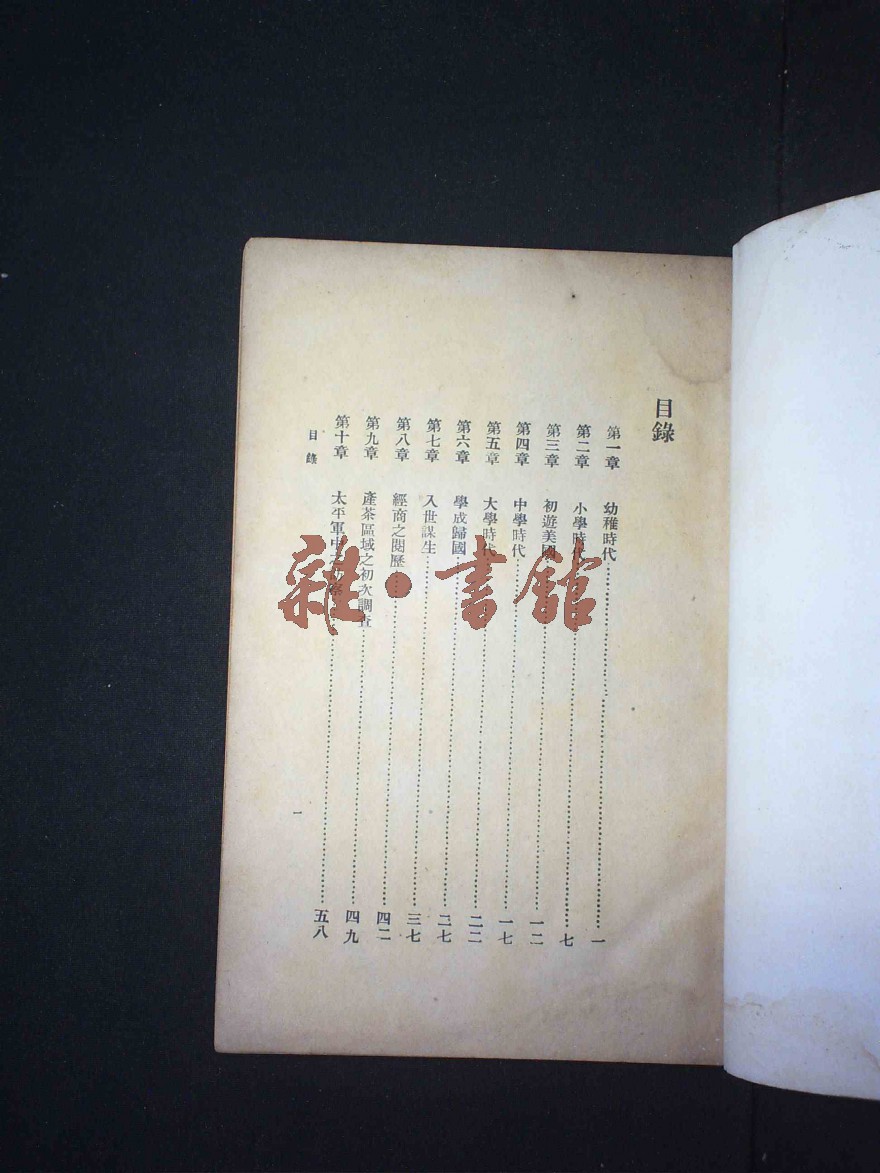 目錄
第一章 幼稚時代 一
第二章 小學時代 七
第三章 初遊美國 一二
第四章 中學時代 一七
第五章 大學時代 二二
第六章 學成歸國 二七
第七章 入世謀生 三七
第八章 經商之閱歷 四二
第九章 產茶區域之初次調查 四九
第十章 太平軍中之訪察 五八
目錄
一
雜·書館